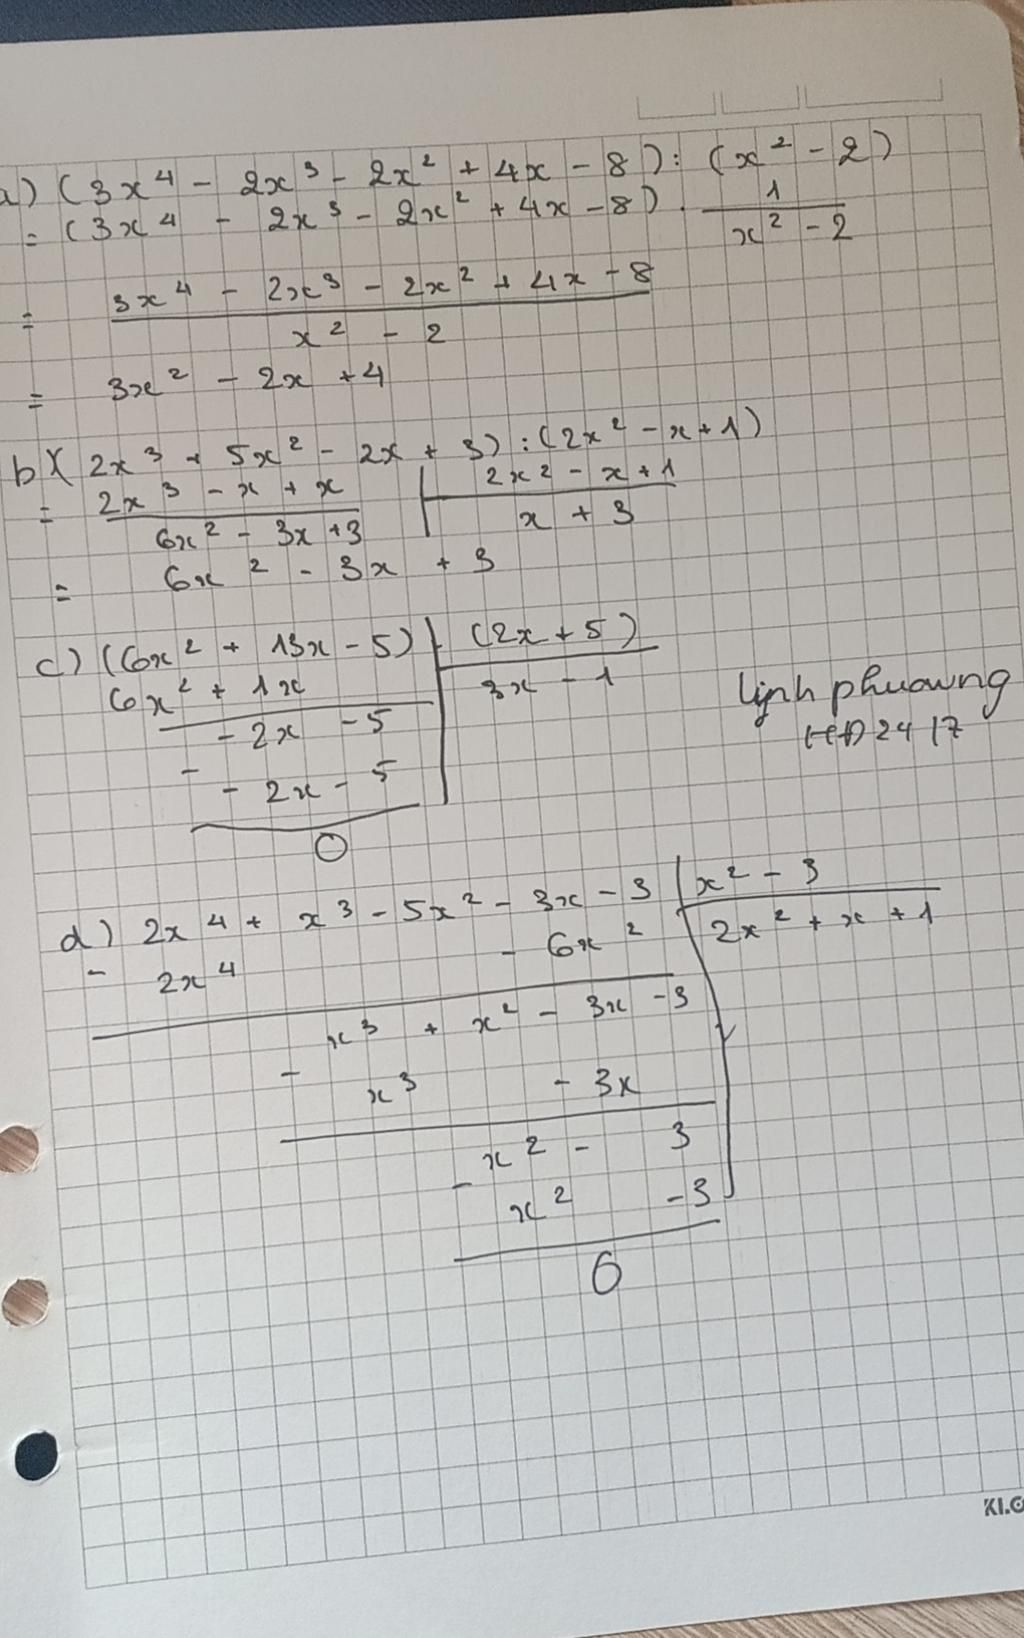 a) (3x⁴ - 2x³ - 2x² + 4x - 8) : (x² - 2)
= (3x⁴ - 2x³ - 2x² + 4x - 8) . 1
x² - 2
= 3x⁴ - 2x³ - 2x² + 4x - 8
x² - 2
= 3x² - 2x + 4
b) (2x³ + 5x² - 2x + 3) : (2x² - x + 1)
= 2x³ - x + x 2x² - x + 1
6x² - 3x + 3 x + 3
= 6x² - 3x + 3
c) (6x² + 13x - 5) (2x + 5)
6x² + 1x 3x - 1
- 2x - 5
- - 2x - 5
0
Linh phuong
2417
d) 2x⁴ + x³ - 5x² - 3x - 3 x² - 3
- 2x⁴ - 6x² 2x² + x + 1
x³ + x² - 3x - 3
- x³ - 3x
x² - 3
- x² - 3
0